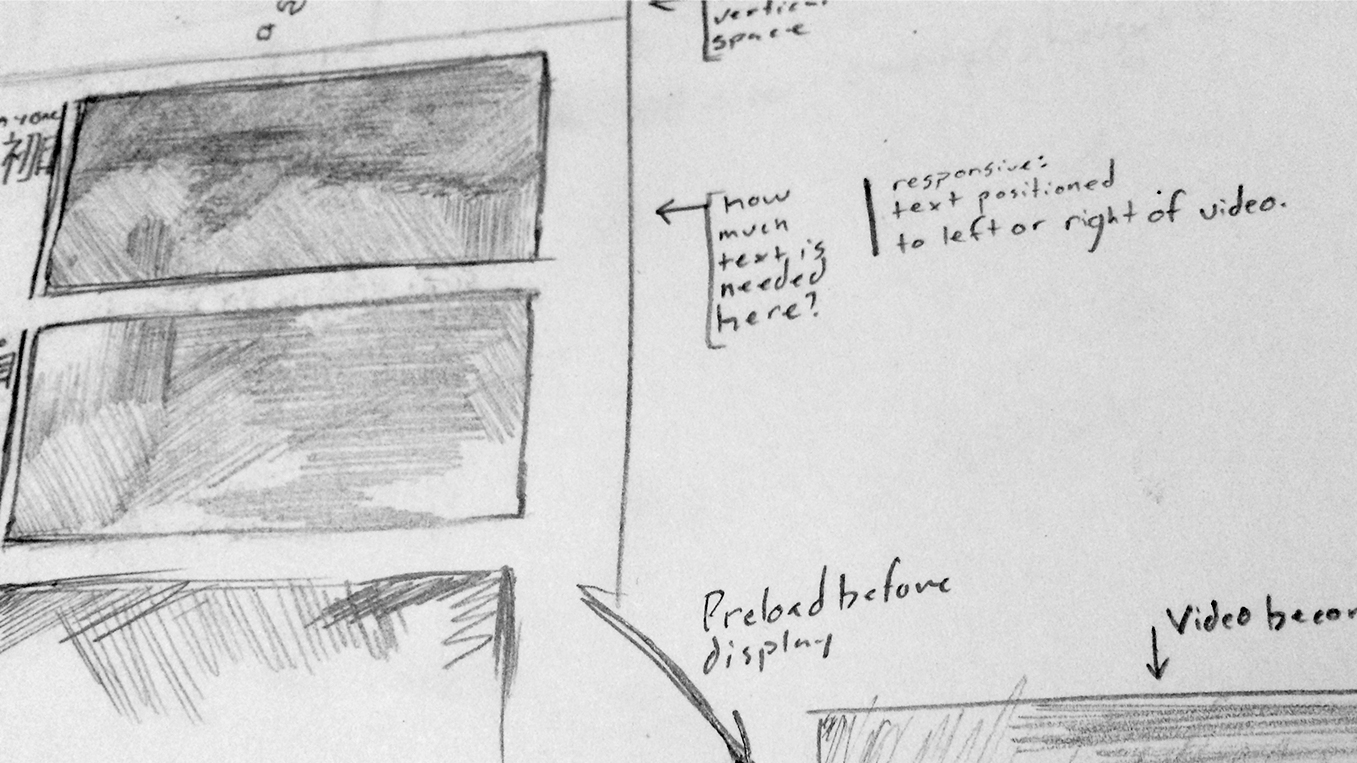 vertical
space
初
how
much
text is
needed
here?
responsive:
text positioned
to left or right of video.
Preload before
display
Video becom